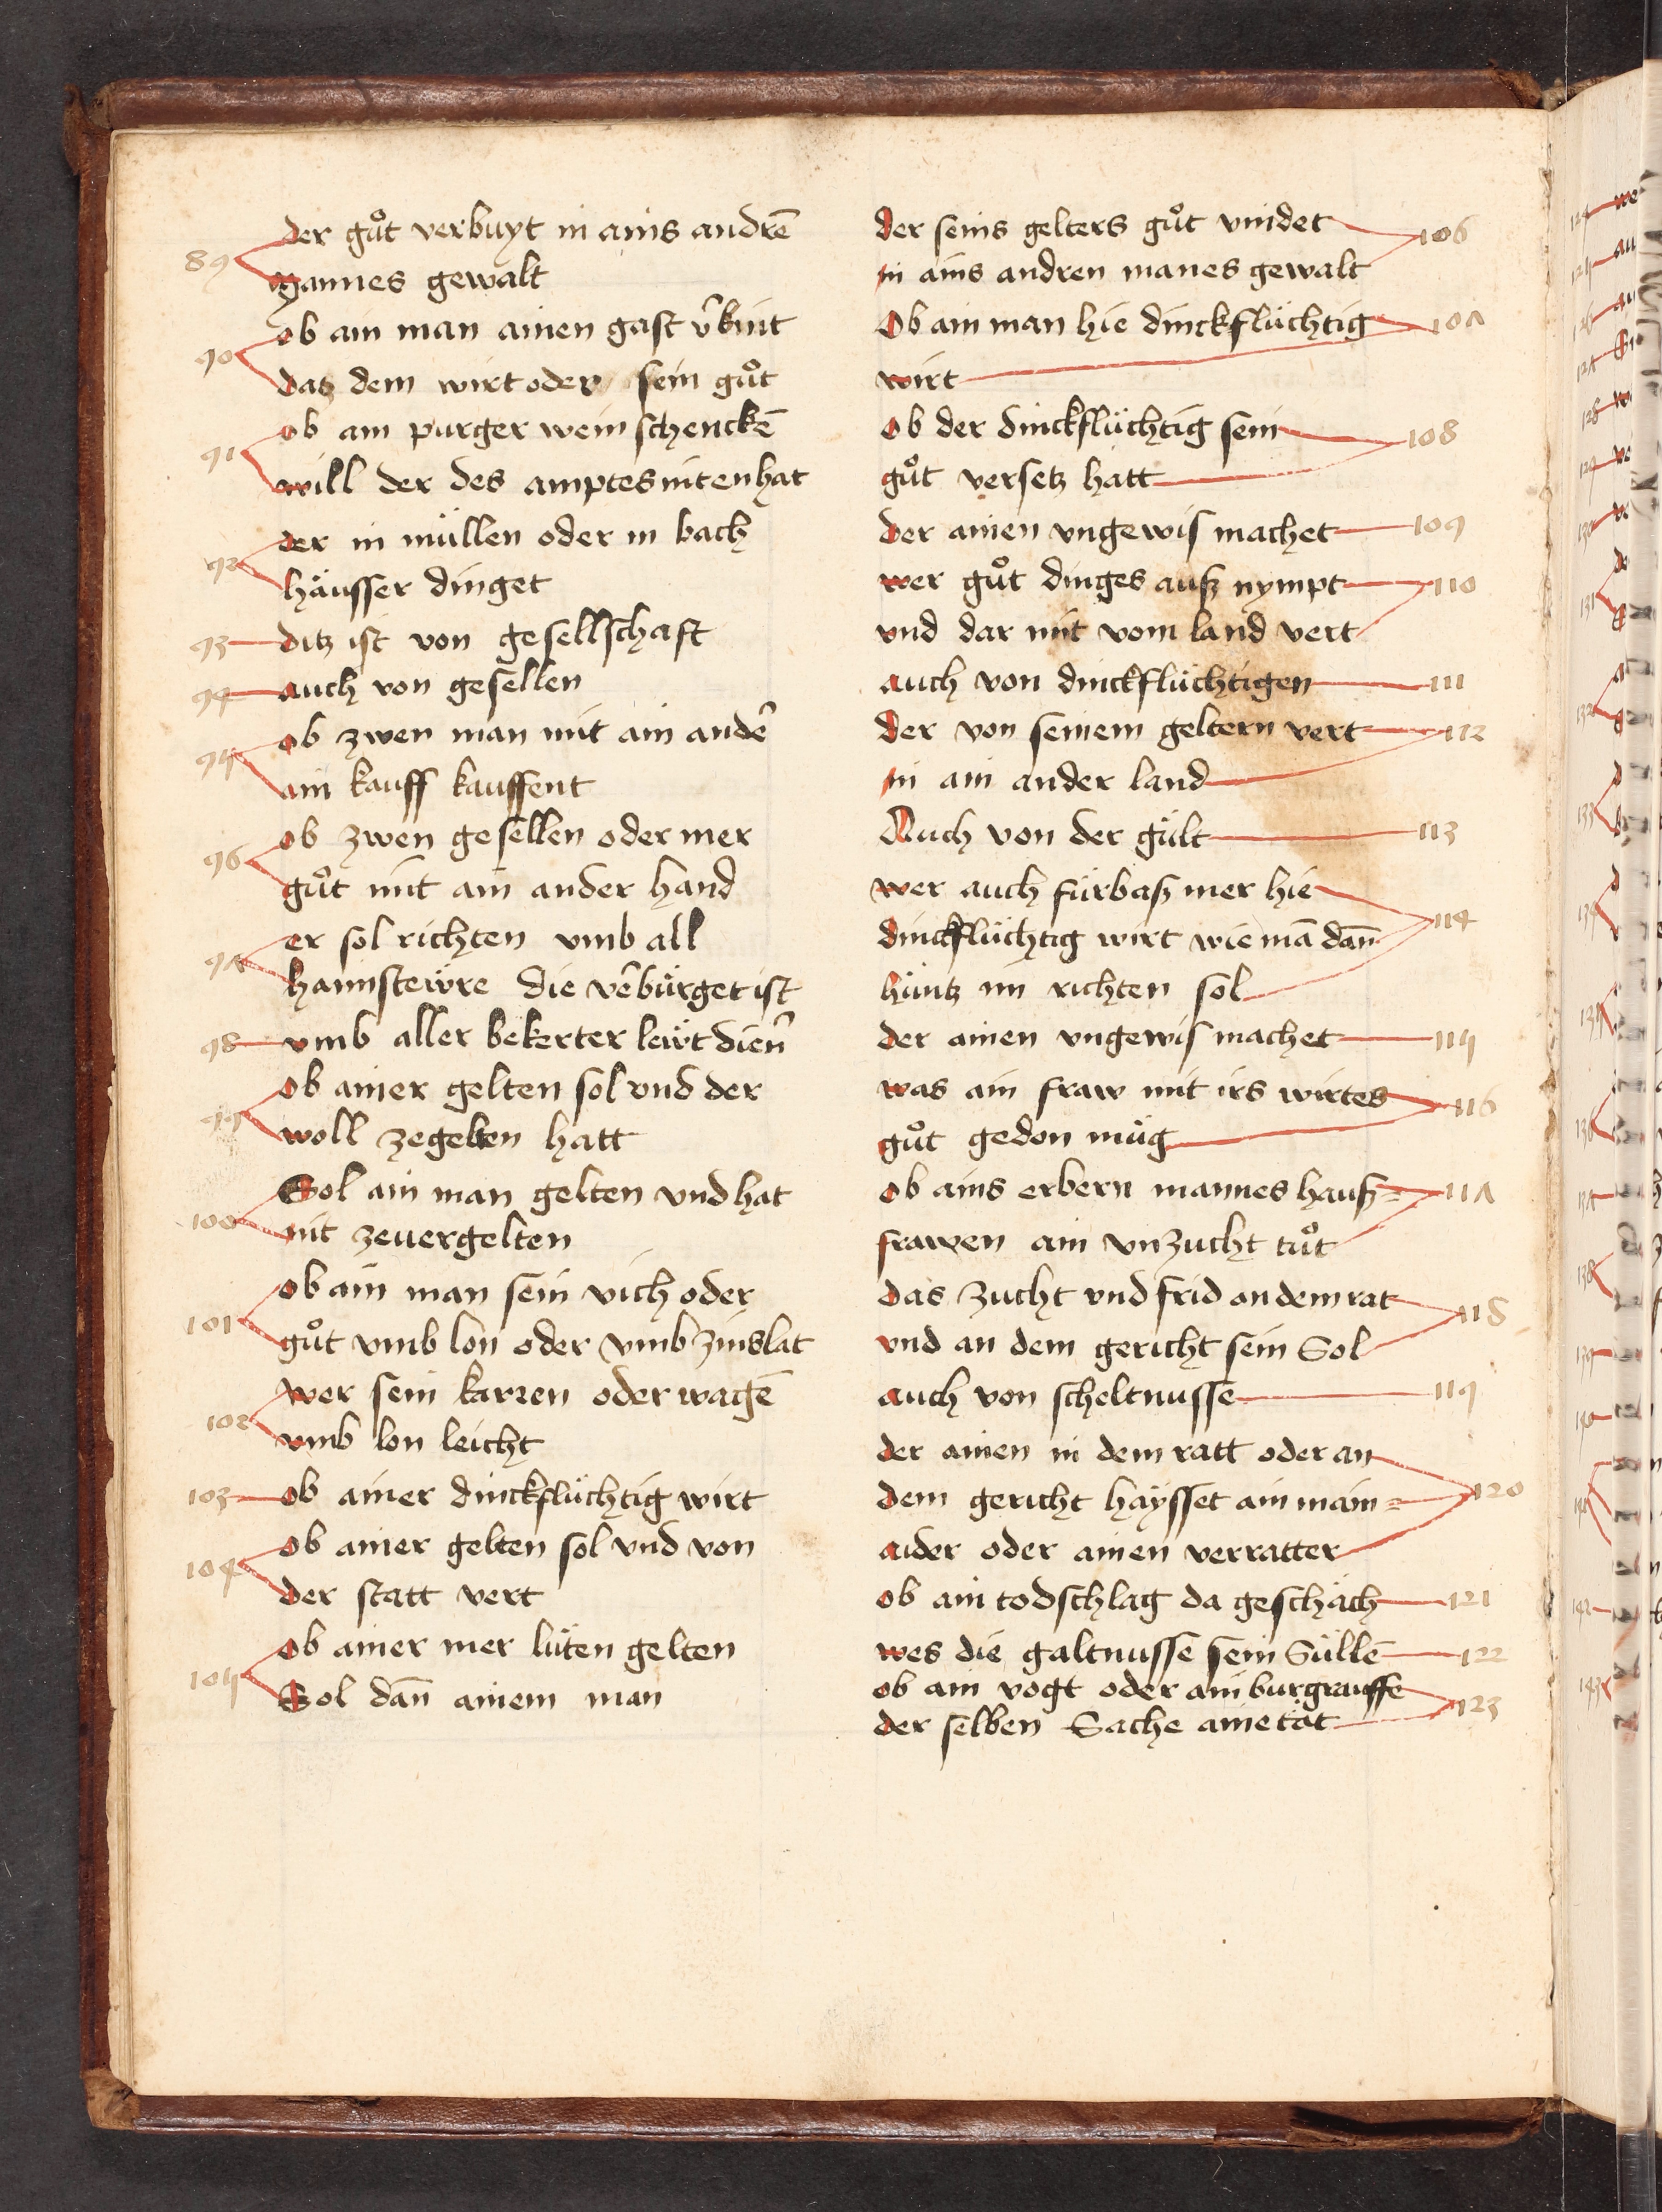 89 der guͦt verbuyt in ains andrē
mannes gewalt
90 ob ain man ainen gast v̂büt
datz dem wirt oder sein guͦt
91 ob ain purger wein schenckē
will der des amptes niten hat
92 der in müllen oder in bach
häusser dinget
93 ditz ist von gesellschaft
94 auch von gesellen
95 ob zwen man mit ain andeˀ
ain kauff kauffent
96 ob zwen gesellen oder mer
guͦt mit ain ander hand
97 er sol richten vmb all
haimsteẅre die veˀbürget ist
98 vmb aller bekerter leẅt dienˀ
99 ob ainer gelten sol vnd der
woll zegelten hatt
100 Sol ain man gelten vnd hat
nit zeuergelten
101 ob ain man sein vich oder
guͦt vmb lon oder vmb zins lat
102 wer sein karren oder wagē
vmb lon leicht
103 ob ainer dinckflüchtig wirt
104 ob ainer gelten sol vnd von
der statt vert
105 ob ainer mer lüten gelten
Sol dan̄ ainem man
der seins gelters guͦt vindet 106
in ains andren manes gewalt
Ob ain man hie dinckflüchtig 107
wirt
ob der dinckflüchtig sein 108
guͦt versetz hatt
der ainen vngewis machet 109
wer guͦt dinges auß nympt 110
vnd dar mit vom land vert
auch von dinckflüchtigen 111
der von seinem geltern vert 112
in ain ander land
Auch von der gült 113
wer auch fürbaß mer hie
dinckflüchtig wirt wie mā dan̄ 114
hüntz im richten sol
der ainen vngewis machet 115
was ain fraw mit irs wirtes 116
guͦt gedon müg
ob ains erbern mannes hauß= 117
frawen ain vnzucht tuͦt
das zucht vnd frid an dem rat 118
vnd an dem gericht sein Sol
auch von scheltnusse 119
der ainen in dem ratt oder an
dem gericht haÿsset ain main= 120
aider oder ainen verratter
ob ain todschlag da geschäch 121
wes die galtnusse sein Süllē 122
ob ain vogt oder ain burgrauffe 123
der selben Sache aine tät